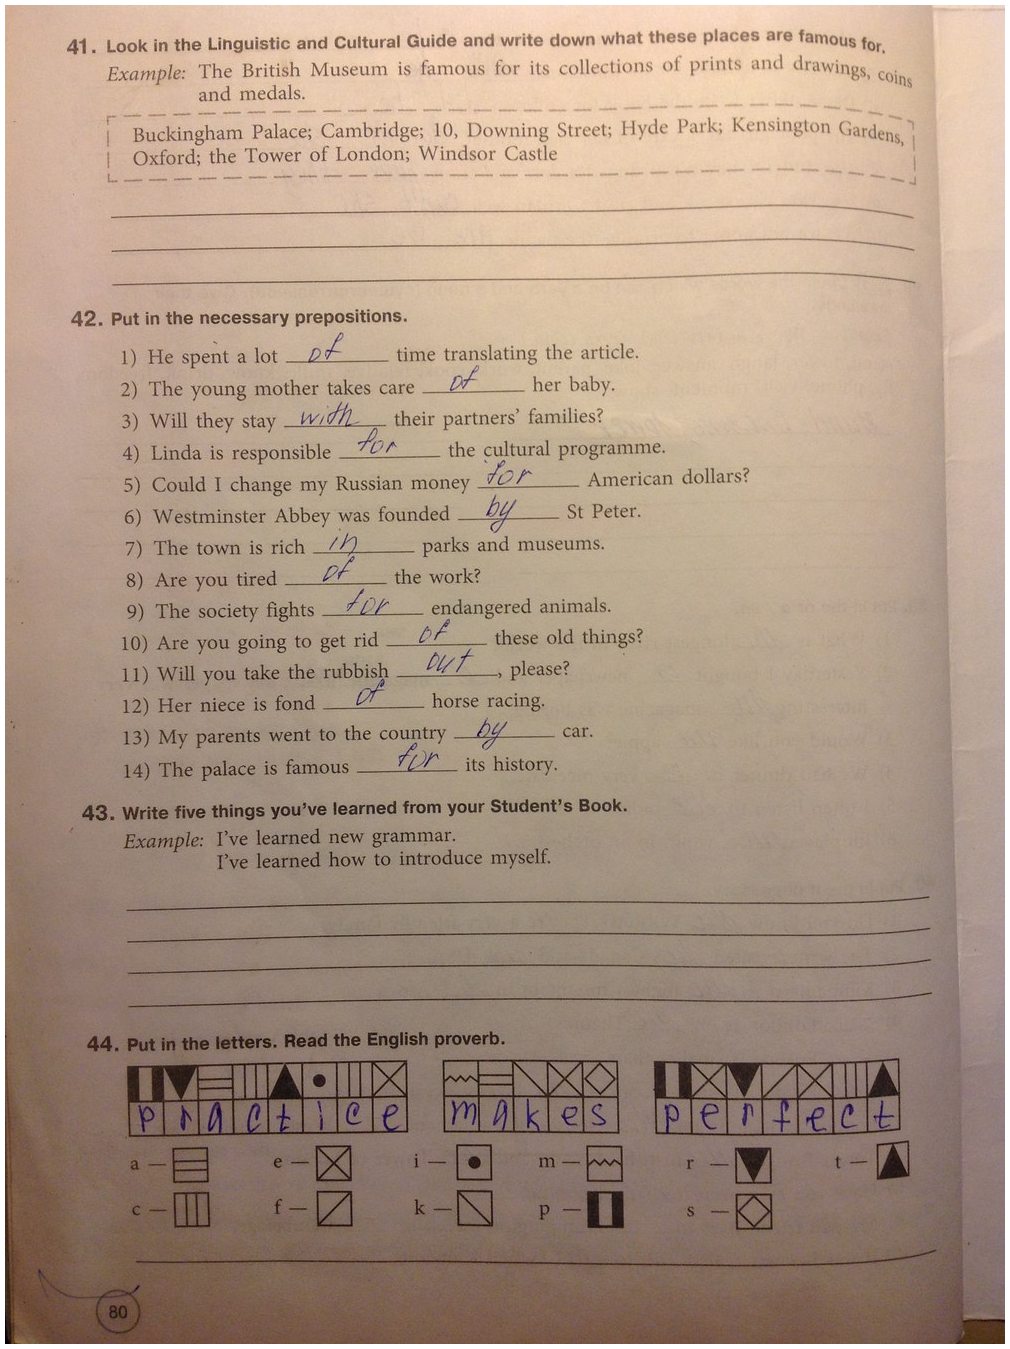 41. Look in the Linguistic and Cultural Guide and write down what these places are famous for.
Example: The British Museum is famous for its collections of prints and drawings, coins
and medals.
Buckingham Palace; Cambridge; 10, Downing Street; Hyde Park; Kensington Gardens,
Oxford; the Tower of London; Windsor Castle
42. Put in the necessary prepositions.
1) He spent a lot of time translating the article.
2) The young mother takes care of her baby.
3) Will they stay with their partners' families?
4) Linda is responsible for the cultural programme.
5) Could I change my Russian money for American dollars?
6) Westminster Abbey was founded by St Peter.
7) The town is rich in parks and museums.
8) Are you tired of the work?
9) The society fights for endangered animals.
10) Are you going to get rid of these old things?
11) Will you take the rubbish out, please?
12) Her niece is fond of horse racing.
13) My parents went to the country by car.
14) The palace is famous for its history.
43. Write five things you've learned from your Student's Book.
Example: I've learned new grammar.
I've learned how to introduce myself.
44. Put in the letters. Read the English proverb.
practice makes perfect
a — e — i — m — r — t —
c — f — k — p — s —
80